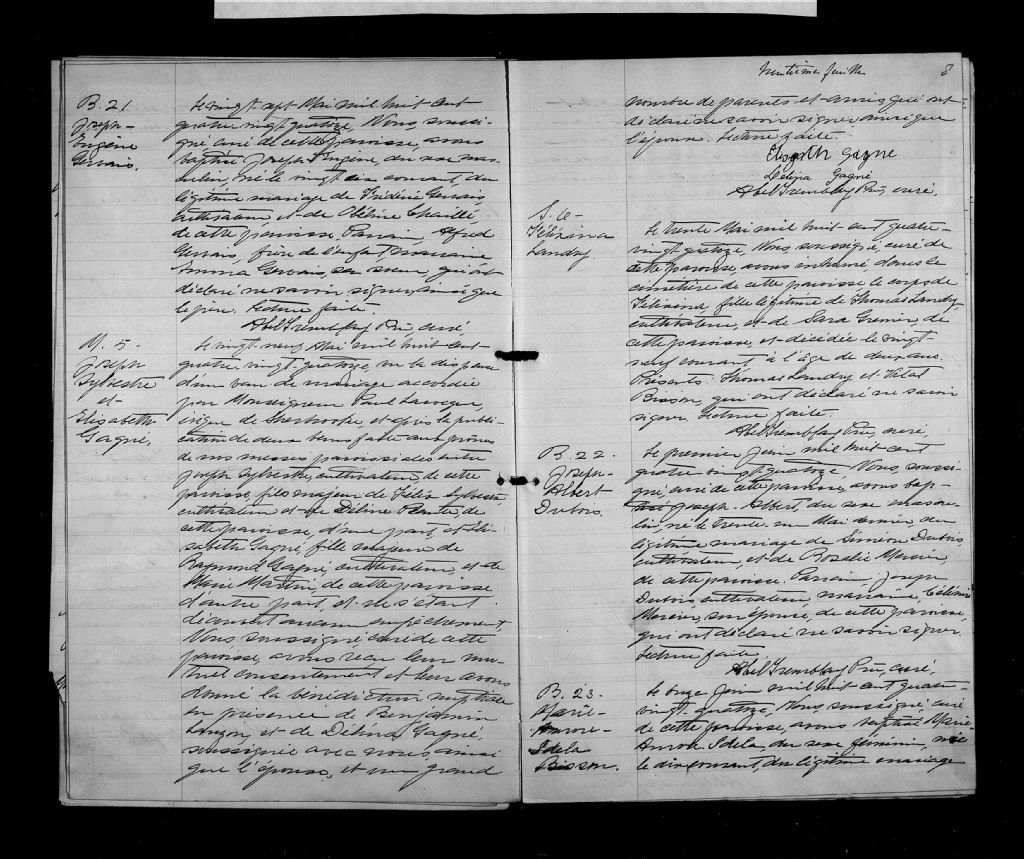 B. 21
Joseph-
Eugène
Gervais.
Le vingt-sept Mai mil huit cent
quatre vingt quatorze, Nous, soussi-
gné curé de cette paroisse, avons
baptisé Joseph Eugène, du sexe mas-
culin, né le vingt six courant, du
légitime mariage de Frédéric Gervais,
cultivateur et de
de cette paroisse. Parrain, Alfred
Gervais, frère de l'enfant, marraine
Emma Gervais, sa sœur, qui ont
déclaré ne savoir signer, ainsi que
le père. Lecture faite.
Abel Tremblay Ptre, curé
M. 5-
Joseph
Sylvestre
et
Elisabeth
Gagné,
Le vingt-neuf Mai mil huit cent-
quatre vingt-quatorze, vu la dispense
d'un ban de mariage accordée
par Monseigneur Paul Larocque,
évêque de Sherbrooke et vu la publi-
cation de deux bans faite aux prônes
de nos messes paroissiales entre
Joseph Sylvestre, cultivateur, de cette
paroisse, fils majeur de Félix Sylvestre
cultivateur et de Délina Plante, de
cette paroisse, d'une part, et Eli-
sabeth Gagné, fille majeure de
Raymond Gagné, cultivateur, et de
Marie Martin, de cette paroisse
d'autre part, et ne s'étant
découvert aucun empêchement,
Nous soussigné curé de cette
paroisse, avons reçu leur mu-
tuel consentement et leur avons
donné la bénédiction nuptiale
en présence de Benjamin
et de Délina Gagné,
soussignée avec nous, ainsi
que l'épouse, et un grand
8
nombre de parents et amis qui ont
déclaré ne savoir signer ainsi que
l'époux. Lecture faite.
Elisabeth Gagné
Délina Gagné
Abel Tremblay Ptre, curé,
S. 6-
Félixina
Landry
Le trente Mai mil huit cent quatre-
vingt-quatorze, Nous soussigné, curé de
cette paroisse, avons inhumé, dans le
cimetière de cette paroisse le corps de
Félixina, fille légitime de Thomas Landry,
cultivateur, et de Sara Grenier, de
cette paroisse, et décédée le vingt-
neuf courant à l'âge de deux ans.
Présents: Thomas Landry et Vital
Bisson, qui ont déclaré ne savoir
signer. Lecture faite.
Abel Tremblay Ptre, curé,
B. 22-
Joseph-
Albert
Dubois.
Le premier Juin mil huit cent
quatre vingt-quatorze, Nous, soussi-
gné, curé de cette paroisse avons bap-
tisé Joseph-Albert, du sexe mascu-
lin né le trente-un Mai dernier, du
légitime mariage de Siméon Dubois,
cultivateur, et de Rosalie Mercier,
de cette paroisse. Parrain, Joseph
Dubois cultivateur, marraine, Célénire
Mercier, son épouse, de cette paroisse,
qui ont déclaré ne savoir signer,
Lecture faite.
Abel Tremblay Ptre, curé,
B. 23-
Marie-
Aurore-
Idela
Bisson.
Le onze Juin mil huit cent quatre-
vingt quatorze, Nous soussigné, curé
de cette paroisse, avons baptisé Marie
Aurore Idela, du sexe féminin, née
le dix courant, du légitime mariage